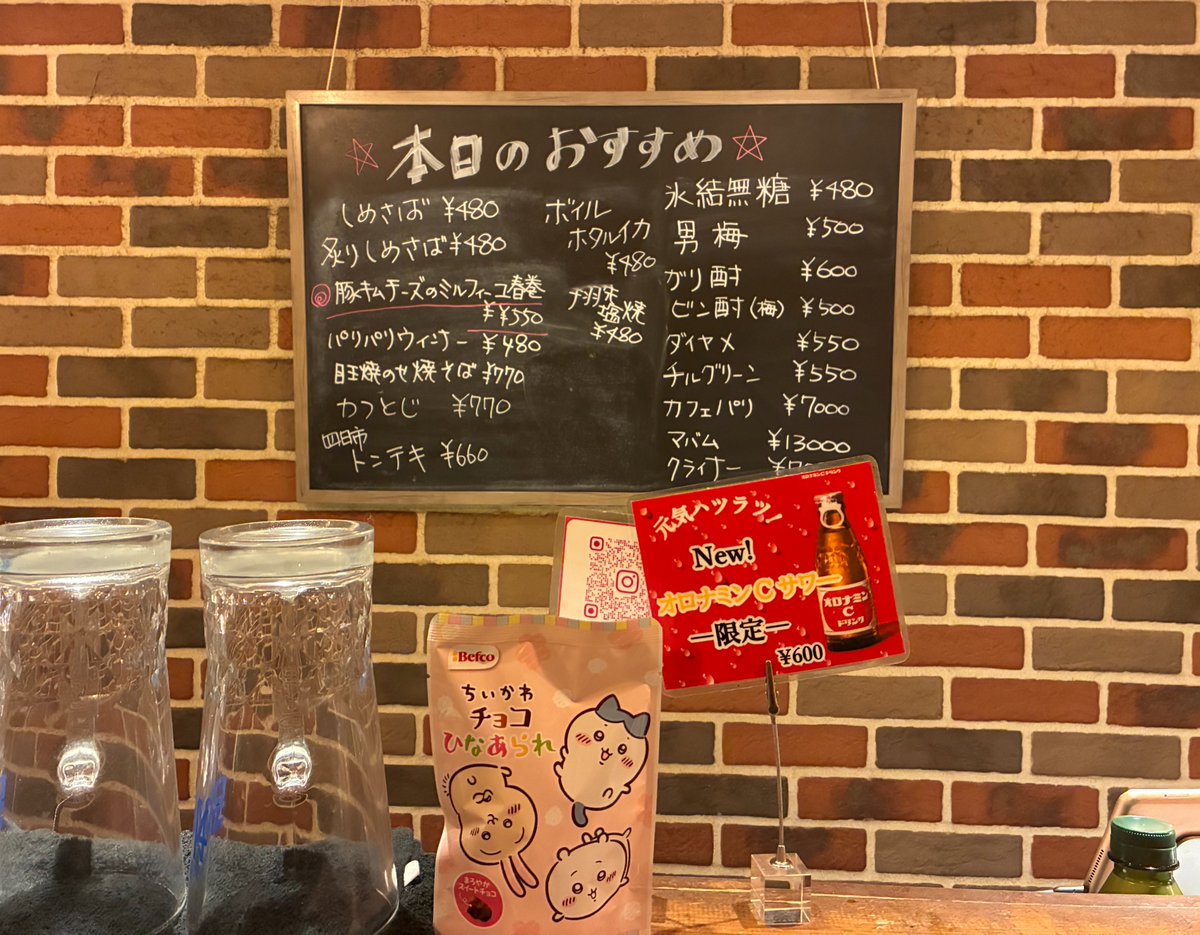 本日のおすすめ
しめさば ¥480
炙りしめさば ¥480
豚キムチーズのミルフィーユ春巻
¥¥550
パリパリウィンナー ¥480
目玉焼のせ焼そば ¥770
カツとじ ¥770
四日市
トンテキ ¥660
ボイル
ホタルイカ
¥480
塩焼
¥480
氷結無糖 ¥480
男梅 ¥500
ガリ酎 ¥600
ビン酎(梅) ¥500
ダイヤメ ¥550
チルグリーン ¥550
カフェパリ ¥7000
マバム ¥13000
クライナー
オロナミンCドリンク
元気ハツラツー
New!
オロナミンCサワー
―限定―
¥600
オロナミン
C
ドリンク
Befco
ちいかわ
チョコ
ひなあられ
まろやか
スイートチョコ